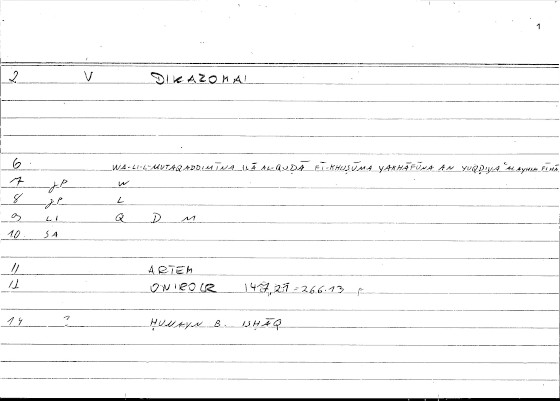 1
2 V DIKAZOMAI
6. WA-LI-L-MUTAQADDIMĪNA ILĀ AL-QUḌĀ FĪ-KHUṢŪMA YAKHĀFŪNA AN YUQḌIYA ʿALAYHIM FĪHĀ
7 JP W
8 JP L
9 LI Q D M
10. SA
11 ARTEM
12 ONIROCR 147,21=266.13
14 ? ḤUNAYN B. ISḤĀQ